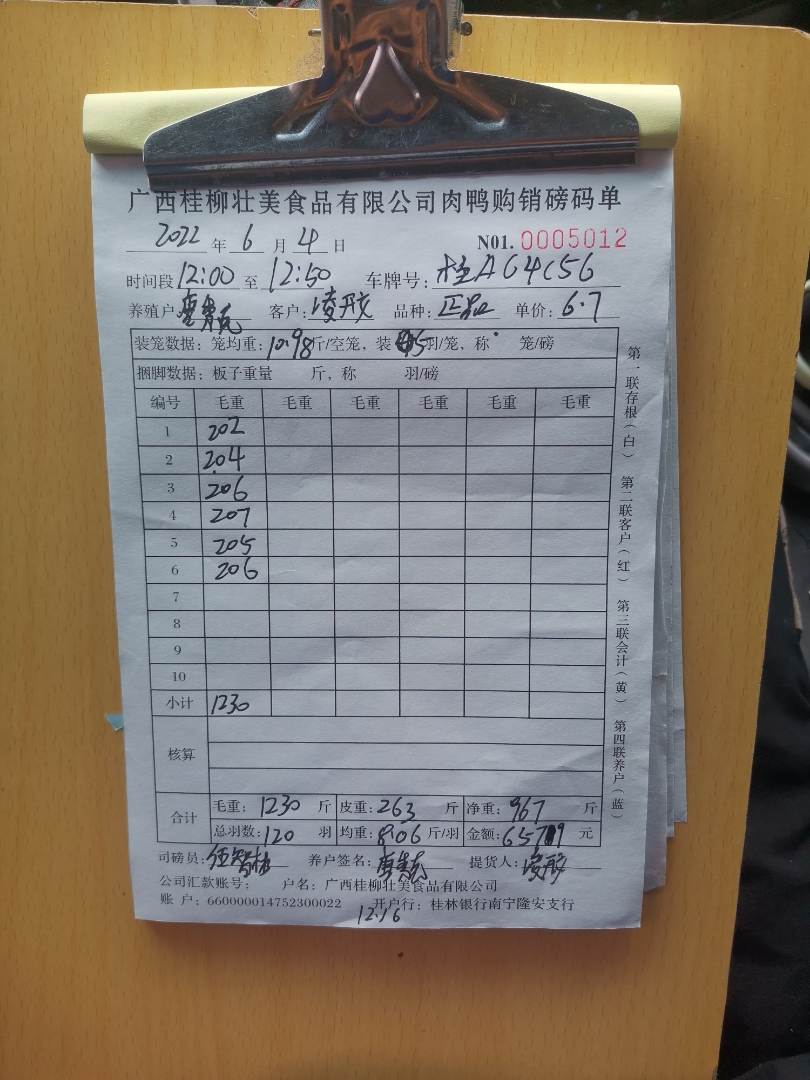 广西桂柳壮美食品有限公司肉鸭购销磅码单
2022 年 6 月 4 日 N01. 0005012
时间段 12:00 至 12:50 车牌号: 桂A64C56
养殖户 客户: 凌开文 品种: 正品 单价: 6.7
装笼数据: 笼均重: 10.98斤/空笼, 装 5羽/笼, 称 笼/磅
捆脚数据: 板子重量 斤, 称 羽/磅
编号 毛重 毛重 毛重 毛重 毛重 毛重
1 202
2 204
3 206
4 207
5 205
6 206
7
8
9
10
小计 1230
核算
合计 毛重: 1230 斤 皮重: 263 斤 净重: 967 斤
总羽数: 120 羽 均重: 8.06 斤/羽 金额: 6579 元
司磅员: 养户签名: 提货人:
公司汇款账号: 户名: 广西桂柳壮美食品有限公司
账 户: 660000014752300022 开户行: 桂林银行南宁隆安支行
12.16
第一联存根(白) 第二联客户(红) 第三联会计(黄) 第四联养户(蓝)